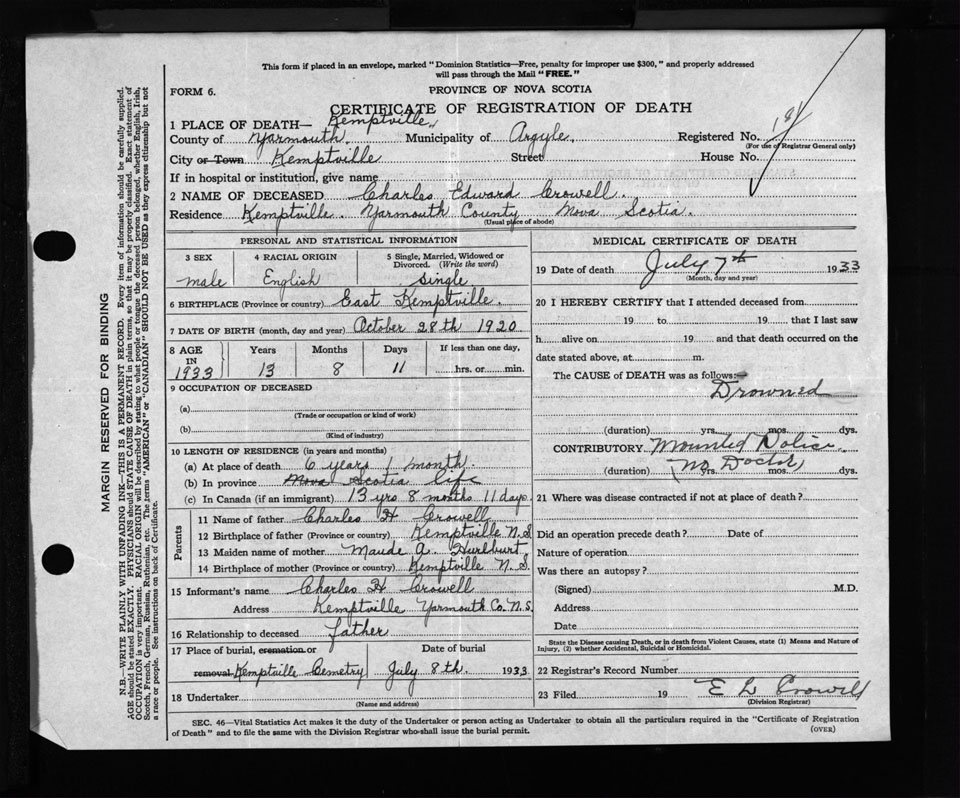 This form if placed in an envelope, marked "Dominion Statistics—Free, penalty for improper use $300," and properly addressed
will pass through the Mail "FREE."
FORM 6.
PROVINCE OF NOVA SCOTIA
CERTIFICATE OF REGISTRATION OF DEATH
1 PLACE OF DEATH— Kemptville
County of Yarmouth Municipality of Argyle Registered No.
(For use of Registrar General only)
City or Town Kemptville Street House No.
If in hospital or institution, give name
2 NAME OF DECEASED Charles Edward Crowell
Residence Kemptville. Yarmouth County Nova Scotia.
(Usual place of abode)
PERSONAL AND STATISTICAL INFORMATION
3 SEX 4 RACIAL ORIGIN 5 Single, Married, Widowed or
Divorced. (Write the word)
male English single
6 BIRTHPLACE (Province or country) East Kemptville.
7 DATE OF BIRTH (month, day and year) October 28th 1920
8 AGE Years Months Days If less than one day,
IN
1933 13 8 11 hrs. or min.
9 OCCUPATION OF DECEASED
(a)
(Trade or occupation or kind of work)
(b)
(Kind of industry)
10 LENGTH OF RESIDENCE (in years and months)
(a) At place of death 6 years 1 month
(b) In province Nova Scotia life
(c) In Canada (if an immigrant) 13 yrs 8 months 11 days
Parents
11 Name of father Charles H Crowell
12 Birthplace of father (Province or country) Kemptville N.S
13 Maiden name of mother Maude A. Hurlburt
14 Birthplace of mother (Province or country) Kemptville N.S.
15 Informant's name Charles H Crowell
Address Kemptville Yarmouth Co. N.S.
16 Relationship to deceased father
17 Place of burial, cremation or Date of burial
removal Kemptville Cemetry July 8th 1933
18 Undertaker
(Name and address)
MEDICAL CERTIFICATE OF DEATH
19 Date of death July 7th 1933
(Month, day and year)
20 I HEREBY CERTIFY that I attended deceased from
19 to 19 that I last saw
h alive on 19 and that death occurred on the
date stated above, at m.
The CAUSE of DEATH was as follows:—
Drowned
(duration) yrs. mos. dys.
CONTRIBUTORY Mounted Police
(No Doctor)
(duration) yrs. mos. dys.
21 Where was disease contracted if not at place of death?
Did an operation precede death? Date of
Nature of operation
Was there an autopsy?
(Signed) M.D.
Address
Date
State the Disease causing Death, or in death from Violent Causes, state (1) Means and Nature of
Injury, (2) whether Accidental, Suicidal or Homicidal.
22 Registrar's Record Number
23 Filed 19 E L Crowell
(Division Registrar)
SEC. 46—Vital Statistics Act makes it the duty of the Undertaker or person acting as Undertaker to obtain all the particulars required in the "Certificate of Registration
of Death" and to file the same with the Division Registrar who shall issue the burial permit.
(OVER)
MARGIN RESERVED FOR BINDING
N.B.—WRITE PLAINLY WITH UNFADING INK—THIS IS A PERMANENT RECORD. Every item of information should be carefully supplied.
AGE should be stated EXACTLY. PHYSICIANS should STATE CAUSE OF DEATH in plain terms, so that it may be properly classified. Exact statement of
OCCUPATION is very important. RACIAL ORIGIN will be described by stating to what people or tongue the deceased person belonged, whether English, Irish,
Scotch, French, German, Russian, Ruthenian, etc. The terms "AMERICAN" or "CANADIAN" SHOULD NOT BE USED as they express citizenship but not
a race or people. See instructions on back of Certificate.